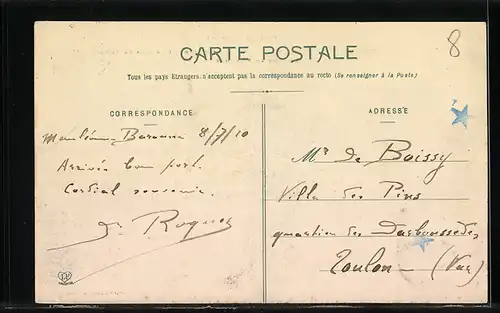 8
CARTE POSTALE
Tous les pays Etrangers n'acceptent pas la correspondance au recto (Se renseigner à la Poste)
CORRESPONDANCE
ADRESSE
8/7/10
Arrivée bon port.
Cordial souvenir.
Roques
Mr de Boissy
Villa des Pins
quartier des Darboussedes
Toulon — (Var)